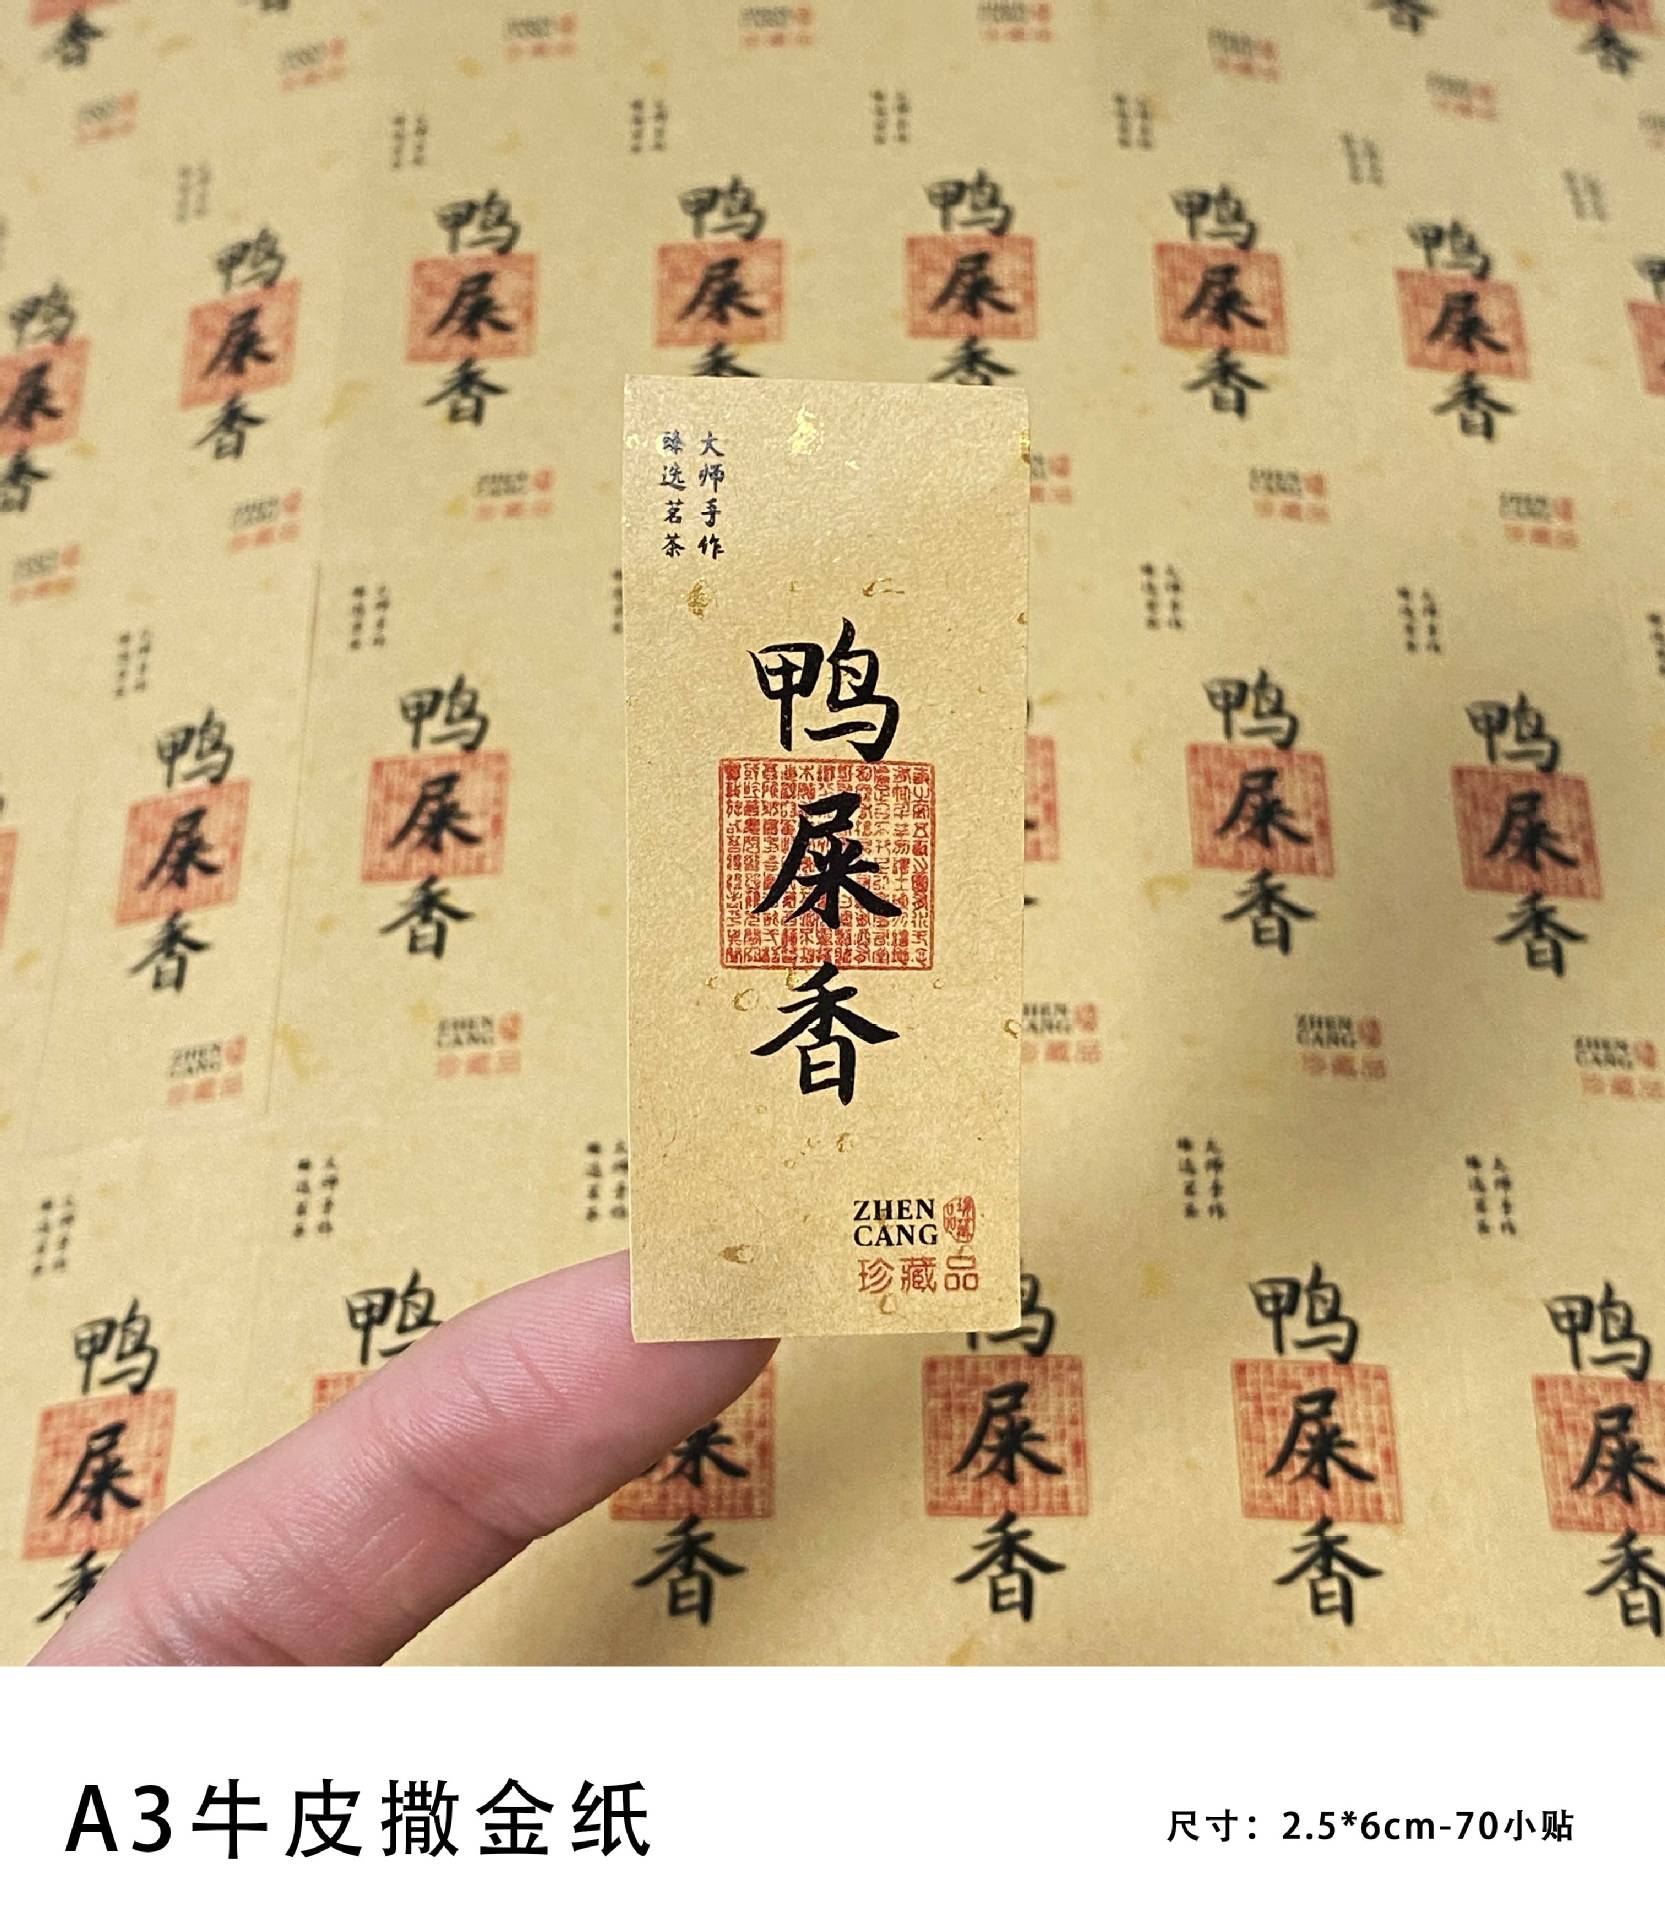 大师手作
臻选茗茶
鸭
屎
香
ZHEN
CANG
珍藏品
A3牛皮撒金纸
尺寸：2.5*6cm-70小贴